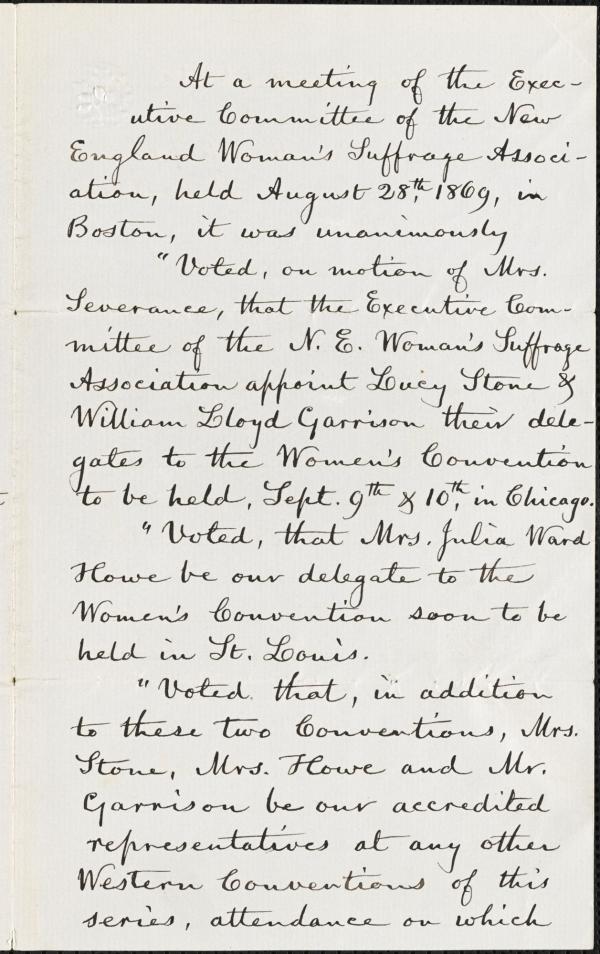 At a meeting of the Exec-
utive Committee of the New
England Woman's Suffrage Associ-
ation, held August 28th, 1869, in
Boston, it was unanimously
"Voted, on motion of Mrs.
Severance, that the Executive Com-
mittee of the N. E. Woman's Suffrage
Association appoint Lucy Stone &
William Lloyd Garrison their dele-
gates to the Women's Convention
to be held, Sept. 9th & 10th, in Chicago.
"Voted, that Mrs. Julia Ward
Howe be our delegate to the
Women's Convention soon to be
held in St. Louis.
"Voted that, in addition
to these two Conventions, Mrs.
Stone, Mrs. Howe and Mr.
Garrison be our accredited
representatives at any other
Western Conventions of this
series, attendance on which